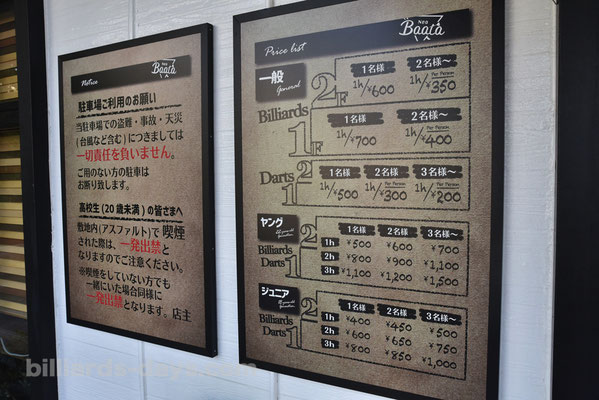 Notice
Neo
Bagta
駐車場ご利用のお願い
当駐車場での盗難・事故・天災
(台風など含む)につきましては
一切責任を負いません。
ご用のない方の駐車は
お断り致します。
高校生(20歳未満)の皆さまへ
敷地内(アスファルト)で喫煙
された際は、一発出禁と
なりますのでご注意ください。
※喫煙をしていない方でも
一緒にいた場合同様に
一発出禁となります。店主
Price list
Neo
Bagta
一般
General
Billiards
2F
1名様
2名様～
1h/¥600
Per Person
1h/¥350
1F
1名様
2名様～
1h/¥700
Per Person
1h/¥400
Darts
1
1名様
2名様
3名様～
1h/¥500
Per Person
1h/¥300
Per Person
1h/¥200
ヤング
Billiards 2
Darts 1
1名様 2名様 3名様～
1h ¥500 ¥600 ¥700
2h ¥800 ¥900 ¥1,100
3h ¥1,100 ¥1,200 ¥1,500
ジュニア
Billiards 2
Darts 1
1名様 2名様 3名様～
1h ¥400 ¥450 ¥500
2h ¥600 ¥650 ¥750
3h ¥800 ¥850 ¥1,000